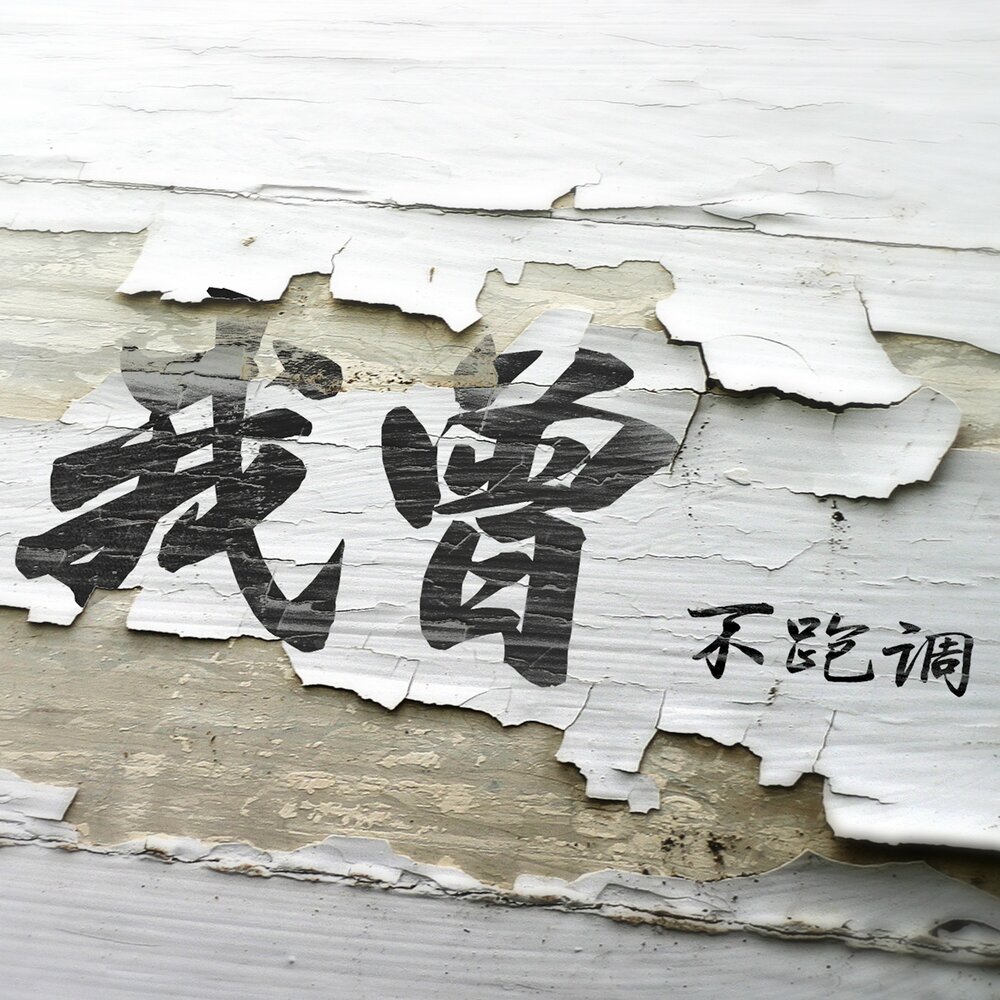 我曾
不跑调